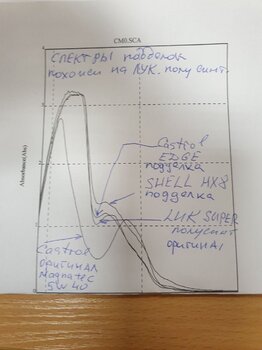 CM0.SCA
СПЕКТРЫ подделок
похожи на ЛУК. полусинт.
Absorbance(Abs)
Castrol
EDGE
подделка
SHELL HX8
подделка
ЛУК SUPER
полусинт
оригинал
Castrol
оригинал
Magnatec
5W40